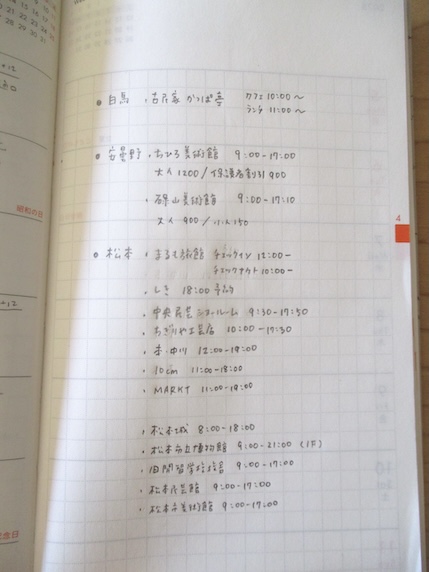 白馬 ・古民家 かっぱ亭 カフェ 10:00〜
ランチ 11:00〜
安曇野 ・ちひろ美術館 9:00-17:00
大人 1200 / 保護者割引 900
・碌山美術館 9:00-17:10
大人 900 / 小人 150
松本 ・まるも旅館 チェックイン 12:00-
チェックアウト 10:00-
・しき 18:00 予約
・中央民芸ショールーム 9:30-17:50
・ちきりや工芸店 10:00-17:30
中川 12:00-19:00
・10cm 11:00-18:00
・MARKT 11:00-19:00
・松本城 8:00-18:00
・松本市立博物館 9:00-21:00 (1F)
・旧開智学校校舎 9:00-17:00
・松本民芸館 9:00-17:00
・松本市美術館 9:00-17:00
4
昭和の日
念日